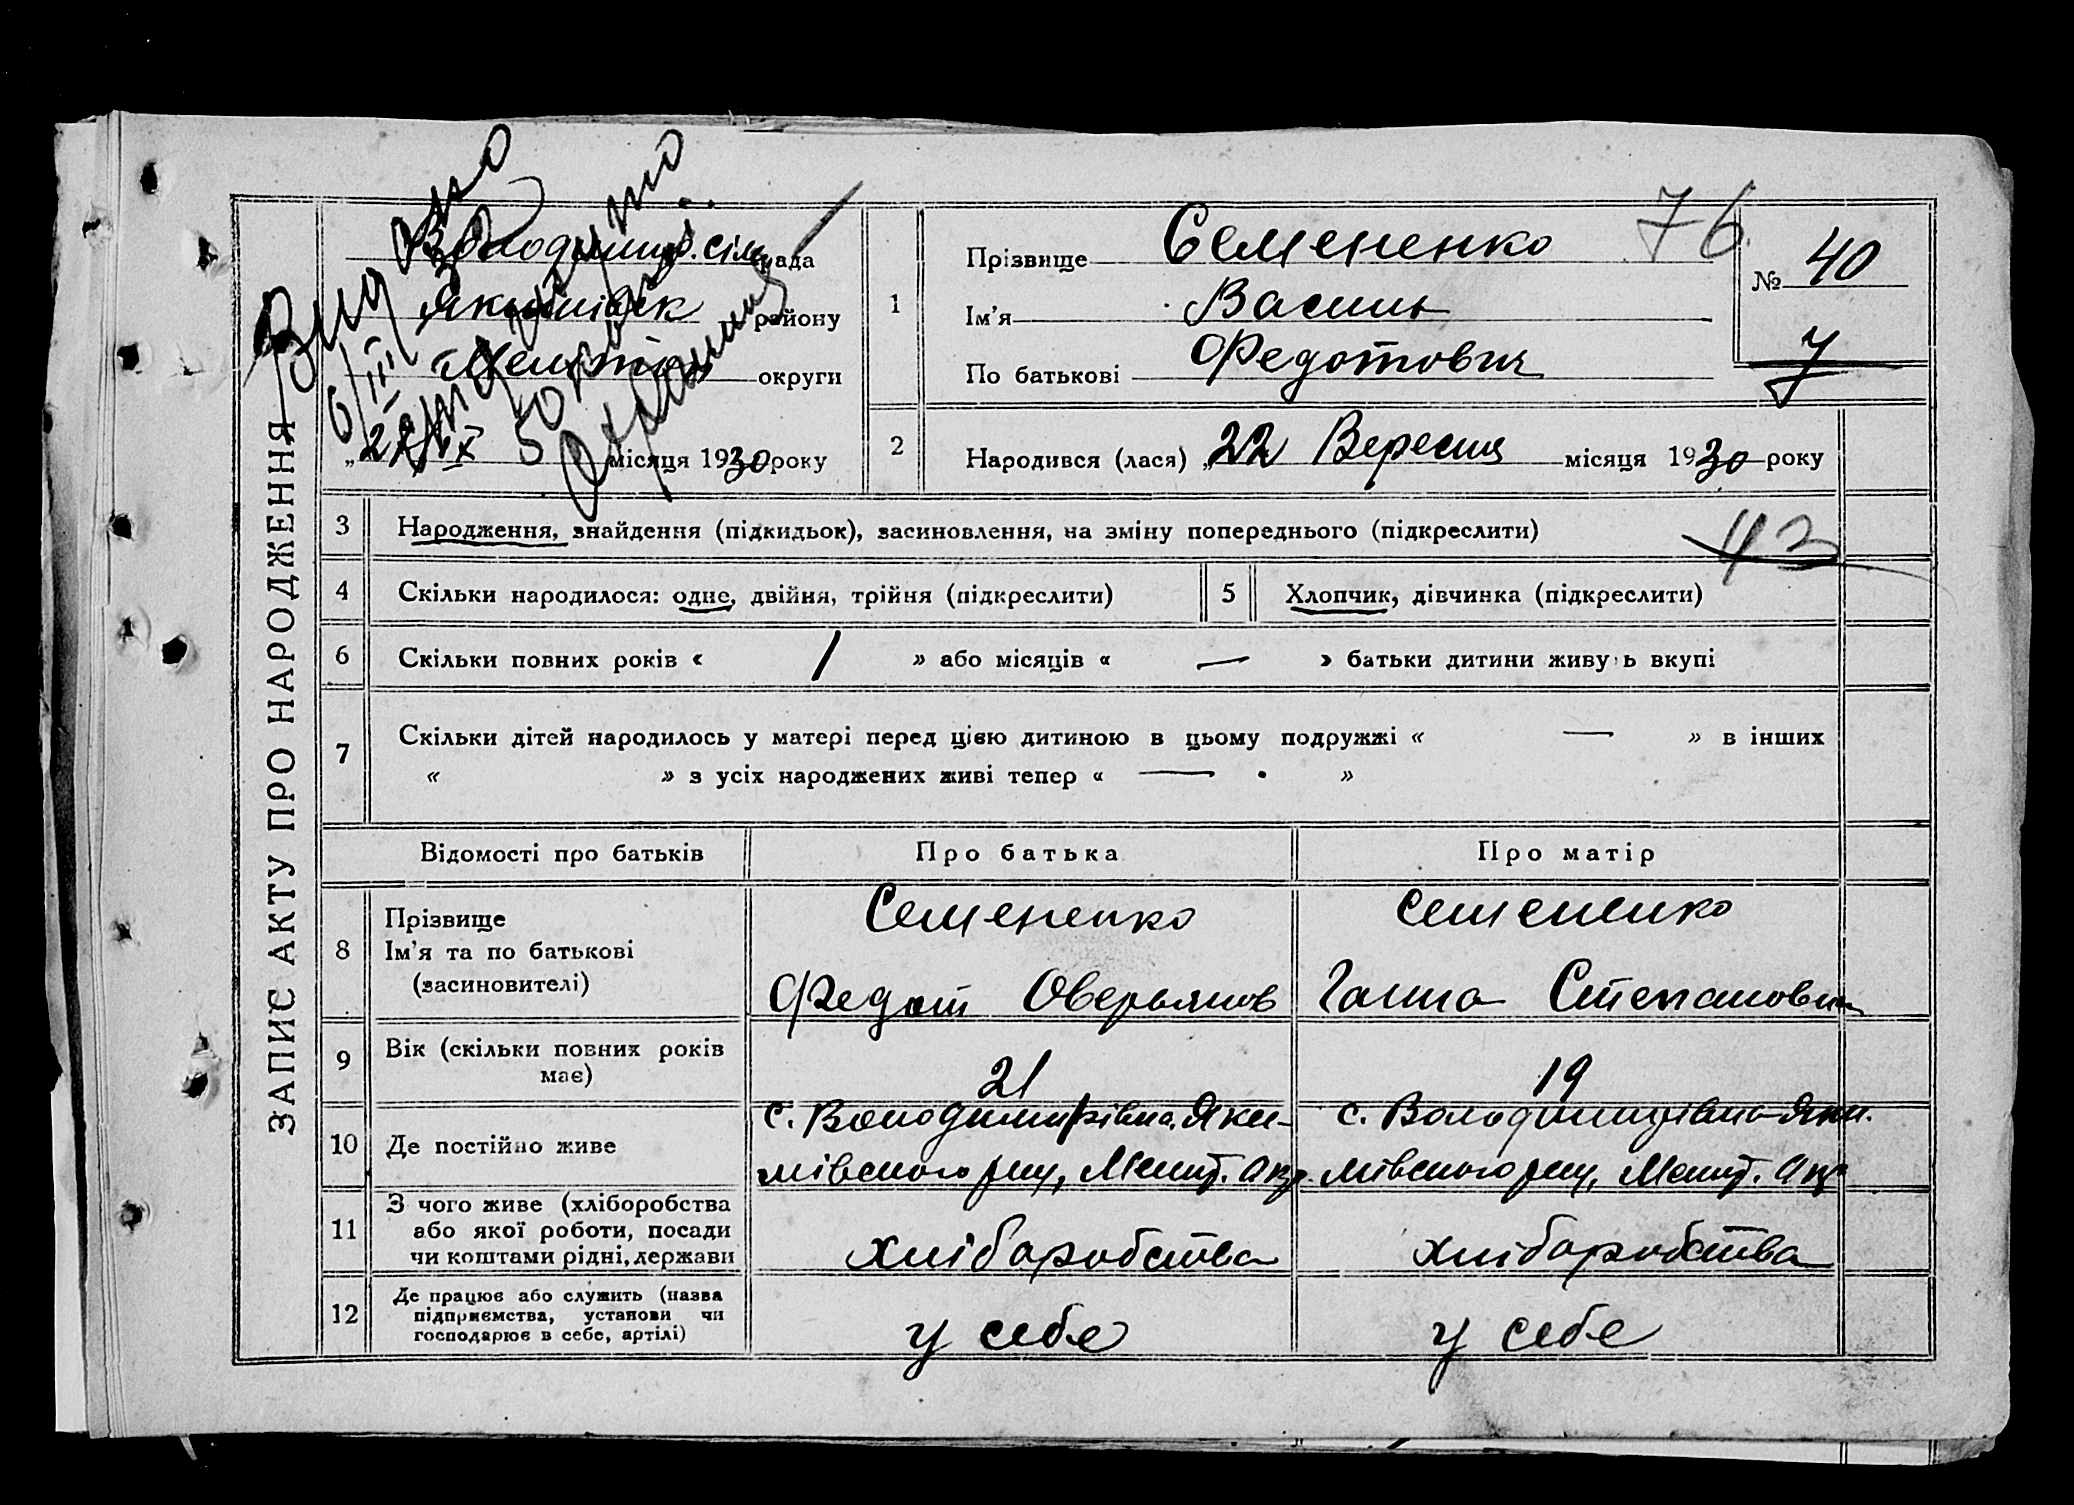 ЗАПИС АКТУ ПРО НАРОДЖЕННЯ
Видано
6/III
Володимир. сільрада
Якимівськ району
Мелітоп округи
„22/IX місяця 1930 року
1
Прізвище Семененко
Ім'я Василь
По батькові Федотович
76
№ 40
7
2
Народився (лася) „22 Вересня місяця 1930 року
3 Народження, знайдення (підкидьок), засиновлення, на зміну попереднього (підкреслити)
43
4 Скільки народилося: одне, двійня, трійня (підкреслити) 5 Хлопчик, дівчинка (підкреслити)
6 Скільки повних років « 1 » або місяців « — » батьки дитини живуть вкупі
7 Скільки дітей народилось у матері перед цією дитиною в цьому подружжі « — » в інших
« » з усіх народжених живі тепер « — »
Відомості про батьків Про батька Про матір
8 Прізвище
Ім'я та по батькові
(засиновителі)
Семененко
Федот Оверьянов
Семененко
Ганна Степановна
9 Вік (скільки повних років
має)
21
19
10 Де постійно живе
с. Володимирівка, Яки-
мівського р-ну, Меліт. окр.
с. Володимирівка Яки-
мівського р-ну, Меліт. окр
11 З чого живе (хліборобства
або якої роботи, посади
чи коштами рідні, держави
хліборобства
хліборобства
12 Де працює або служить (назва
підприємства, установи чи
господарює в себе, артілі)
у себе
у себе